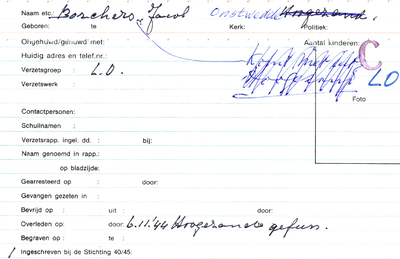 Naam etc.: Borchers, Jacob Onstwedde Hoogezand.
Geboren: te Kerk: Politiek:
Ongehuwd/gehuwd met: Aantal kinderen:
Huidig adres en telef.nr.: C
Verzetsgroep : L.O. LO
Verzetswerk :
Foto
Contactpersonen:
Schuilnamen :
Verzetsrapp. ingel. dd. : bij:
Naam genoemd in rapp.:
op bladzijde:
Gearresteerd op : door:
Gevangen gezeten in :
Bevrijd op : uit : door:
Overleden op: door: 6.11.'44 Hoogezand gefus.
Begraven op : te :
Ingeschreven bij de Stichting 40/45: